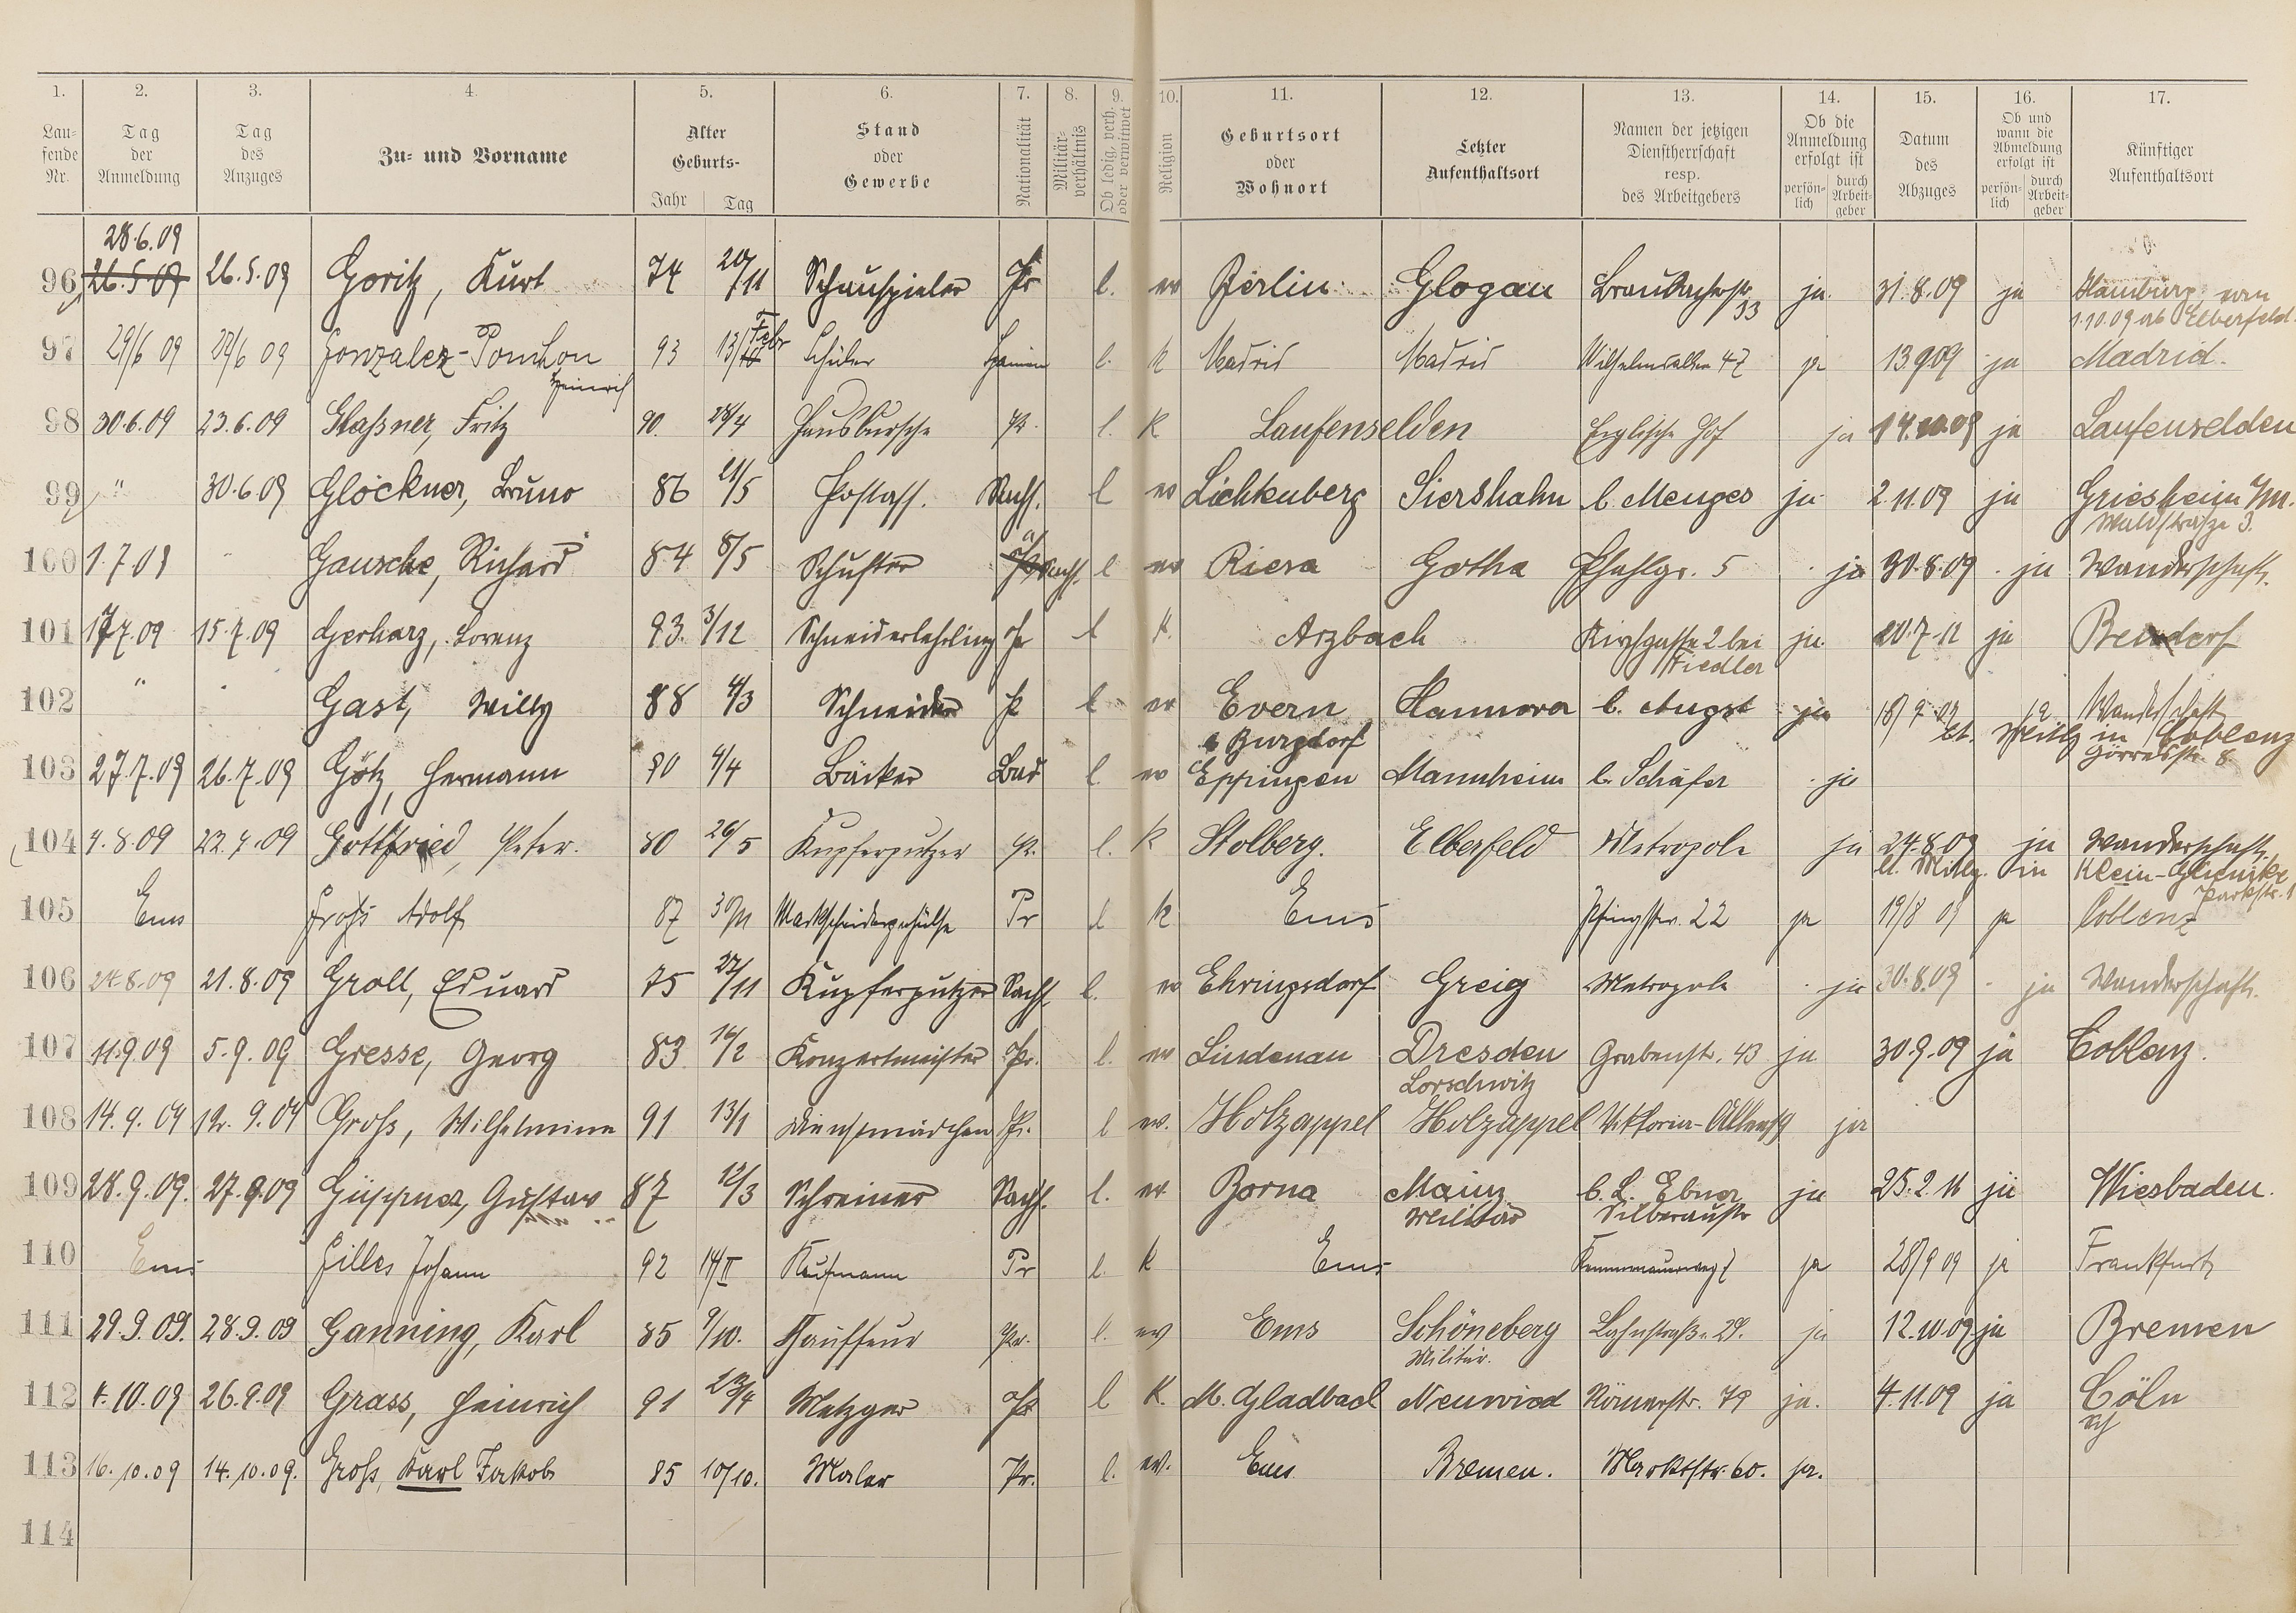 1. 2. 3. 4. 5. 6. 7. 8. 9. 10. 11. 12. 13. 14. 15. 16. 17.
Laufende Nr. Tag der Anmeldung Tag des Anzuges Zu- und Vorname Alter Geburts- Jahr Tag Stand oder Gewerbe Nationalität Militärverhältnis Ob ledig, verh. oder verwitwet Religion Geburtsort oder Wohnort Letzter Aufenthaltsort Namen der jetzigen Dienstherrschaft resp. des Arbeitgebers Ob die Anmeldung erfolgt ist persönlich durch Arbeitgeber Datum des Abzuges Ob und wann die Abmeldung erfolgt ist persönlich durch Arbeitgeber Künftiger Aufenthaltsort
28.6.09
96 26.5.09 26.5.09 Goritz, Kurt 74 20/11 Schauspieler Pr l. ev Berlin Glogau 33 ja. 31.8.09 ja Hamburg, vom
1.10.09 ab Elberfeld.
97 29/6 09 29/6 09 Gonzalez- 93 13/ Febr Schüler Spanien l. k Madrid Madrid Wilhelmsallee 47 ja 13.9.09 ja Madrid.
Heinrich
98 30.6.09 23.6.09 Glaßner, Fritz 90. 28/4 Hausbursche Pr. l. K Laufenselden Englische Hof ja 14.10.09 ja Laufenselden
99 " 30.6.09 Glöckner, Bruno 86 21/5 Postass. Sachs. l ev Lichtenberg Siershahn b. Menges ja 2.11.09 ja Griesheim /M.
Waldstraße 3.
100 1.7.09 " Gausche, Richard 84 8/5 Schuster Sachs. l ev Riesa Gotha Pfahlgr. 5 ja 30.8.09 ja Wanderschaft.
101 17.7.09 15.7.09 Gerharz, Lorenz 93. 3/12 Schneiderlehrling Pr l k. Arzbach Kirchgasse 2 bei ja 20.7.12 ja Bendorf
Fiedler
102 " " Gast, Willy 88 4/3 Schneider Pr l ev Evern Hannover b. August ja 18/9 09 ja Wanderschaft
b Burgdorf in Coblenz
Görresstr. 8.
103 27.7.09 26.7.09 Götz, Hermann 90 4/4 Bäcker Bad l. ev Eppingen Mannheim b. Schäfer ja
104 4.8.09 22.7.09 Gottfried, Peter. 80 26/5 Kupferputzer Pr. l. k Stolberg. Elberfeld Metropole ja 24.8.09 ja Wanderschaft.
lt. Mittlg. in Klein-Glienicke
Parkstr. 1
105 Ems Groß Adolf 87 30/11 Markscheidergehülfe Pr l k Ems Pfingstw. 22 ja 19/8 09 ja Coblenz
106 24.8.09 21.8.09 Groll, Eduard 75 27/11 Kupferputzer Sachs. l. ev Ehringsdorf Greiz Metropole ja 30.8.09 ja Wanderschaft.
107 11.9.09 5.9.09 Gresse, Georg 83 16/2 Konzertmeister Pr. l. ev Lindenau Dresden Grabenstr. 43 ja 30.9.09 ja Coblenz.
Lorschwitz
108 14.9.09 12.9.09 Groß, Wilhelmine 91 13/1 Dienstmädchen Pr. l ev. Holzappel Holzappel Viktoria-Allee 19 ja
109 28.9.09. 27.9.09 Güppner, Gustav 87 12/3 Schreiner Sachs. l. ev Borna Mainz b. L. Ebner ja 25.2.11 ja Wiesbaden.
Militär Silberaustr
110 Ems Gilles Johann 92 14/II Kaufmann Pr l. k Ems ja 28/9 09 ja Frankfurt
111 29.9.09. 28.9.09 Ganning, Karl 85 9/10. Kauffeur Pr. l. ev Ems Schöneberg Lahnstraße 29. ja 12.10.09 ja Bremen
Militär.
112 4.10.09 26.9.09 Grass, Heinrich 91 23/4 Metzger Pr l K. M. Gladbach Neuwied Römerstr. 79 ja. 4.11.09 ja Cöln
113 16.10.09 14.10.09. Groß, Karl Jakob 85 10/10. Maler Pr. l. ev. Ems Bremen. Marktstr. 60. ja.
114